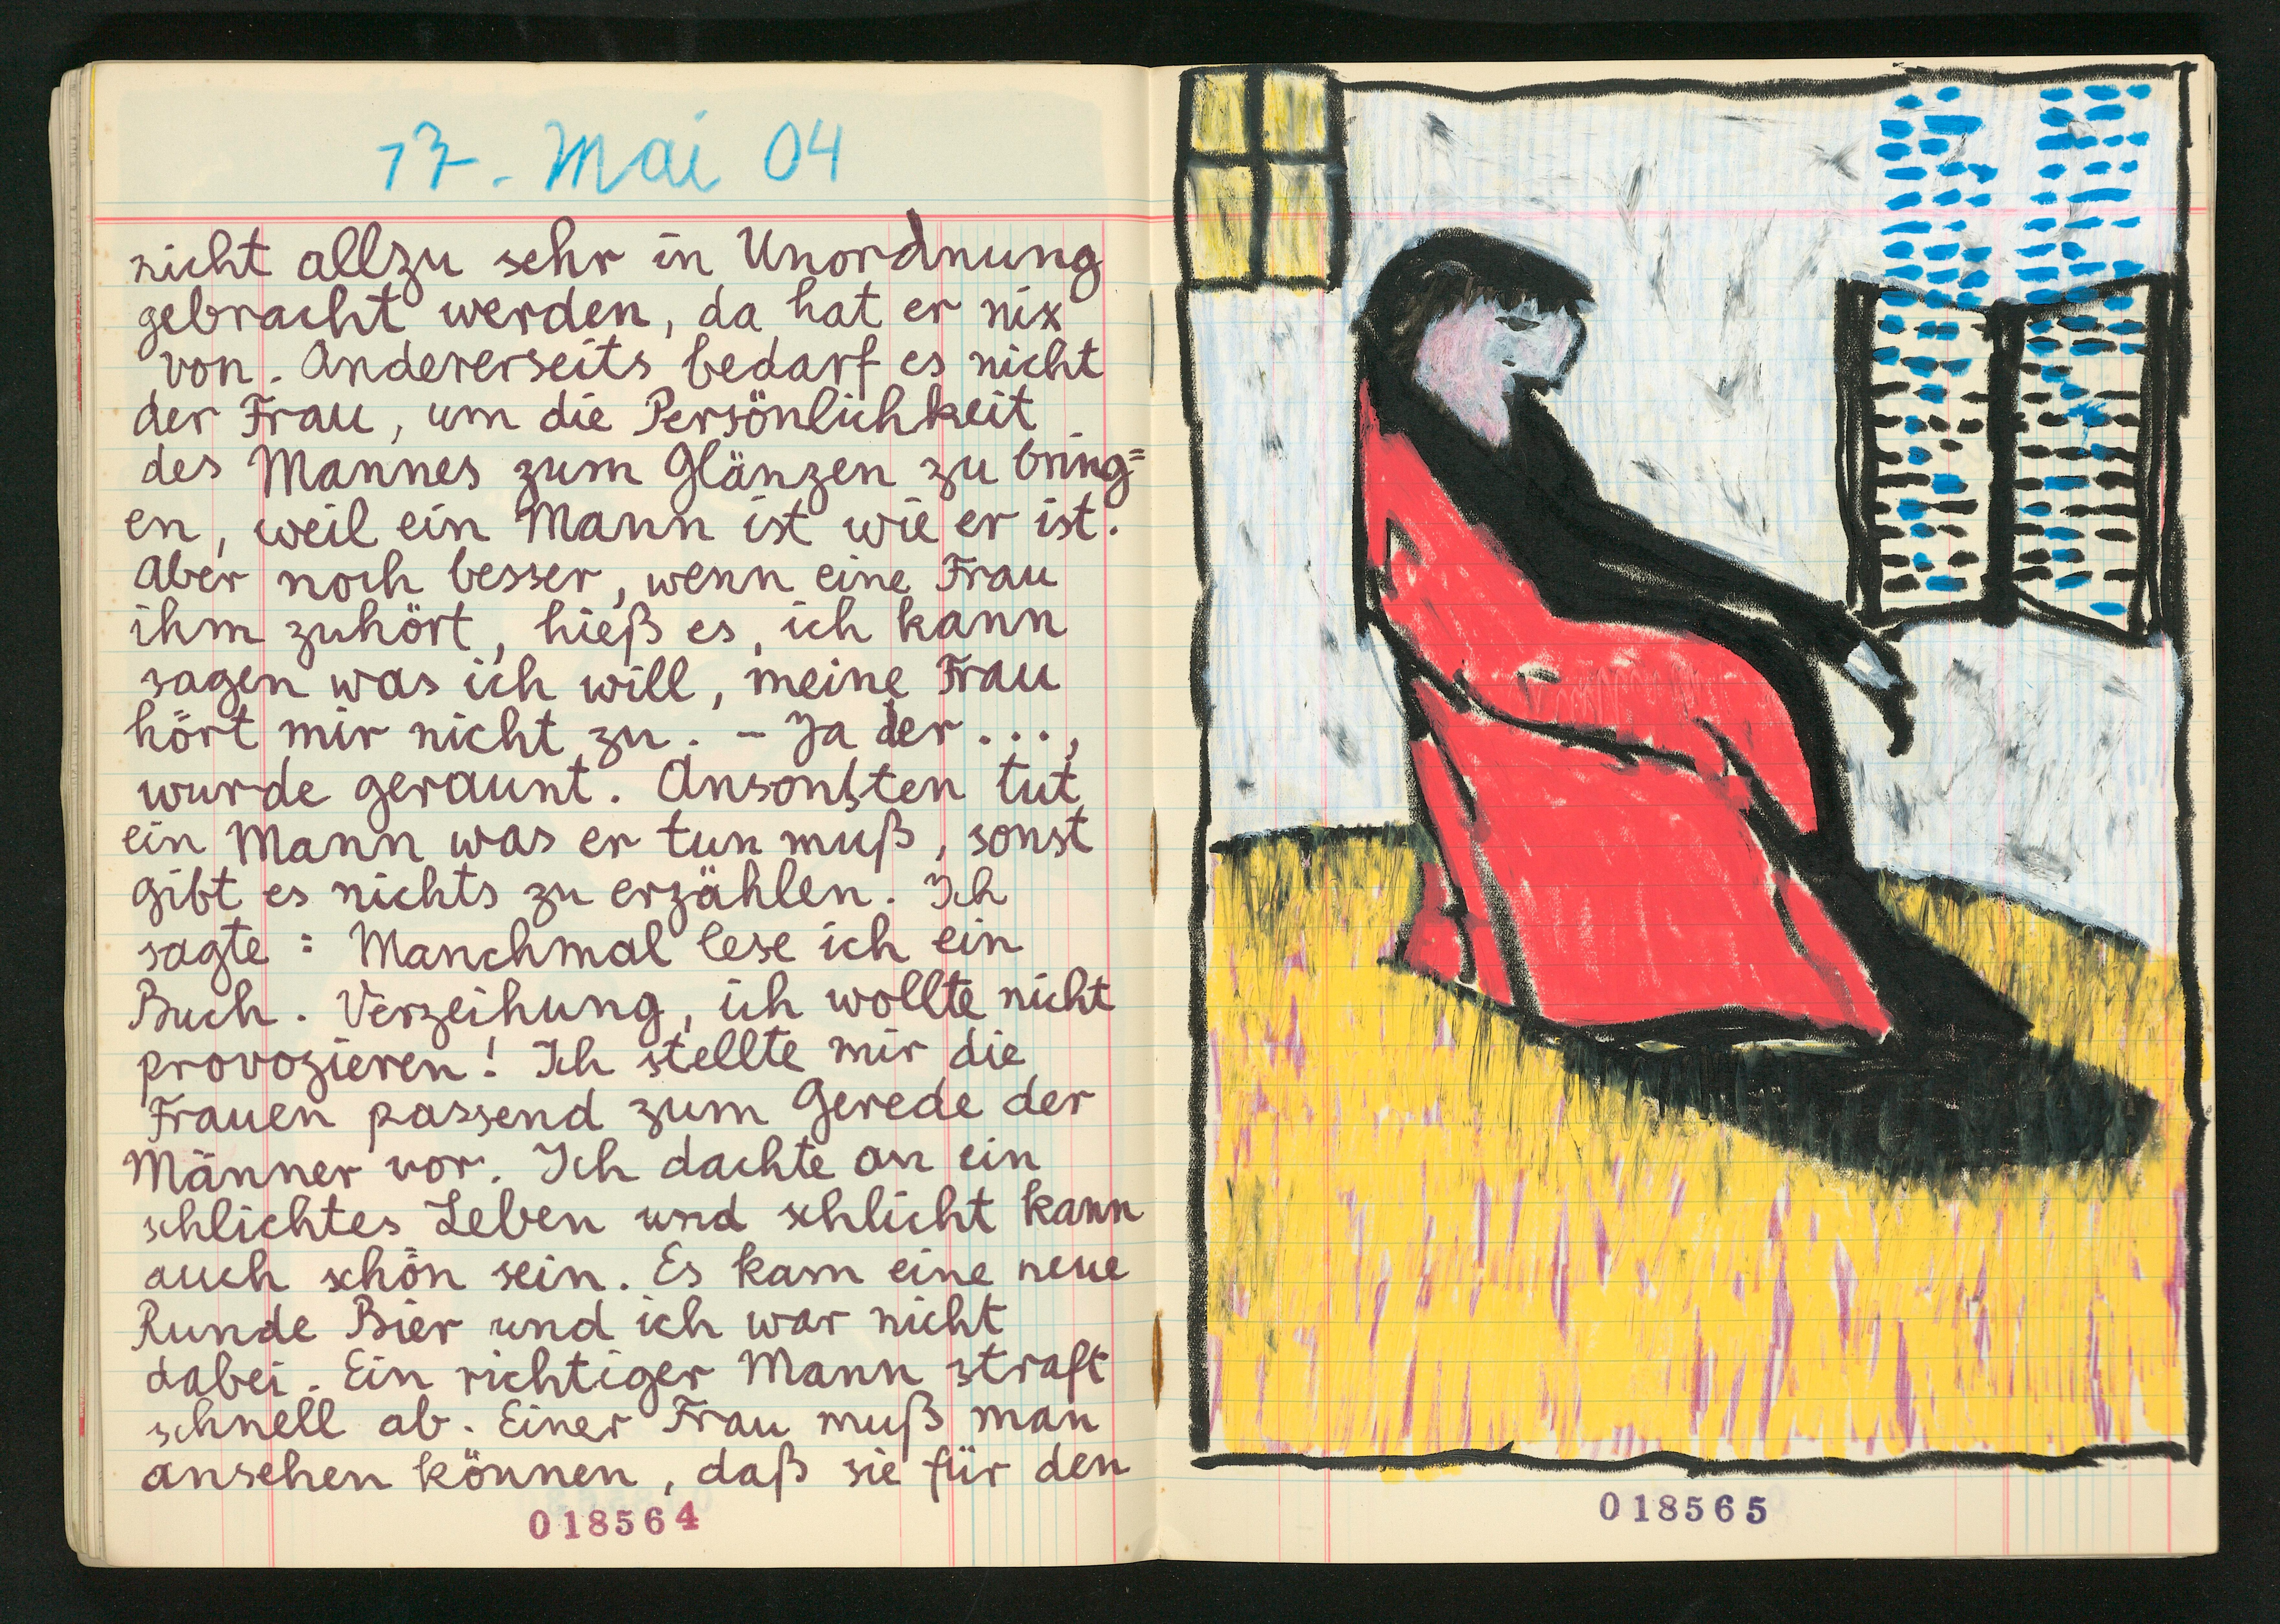 17. Mai 04
nicht allzu sehr in Unordnung
gebracht werden, da hat er nix
von. Andererseits bedarf es nicht
der Frau, um die Persönlichkeit
des Mannes zum Glänzen zu bring=
en, weil ein Mann ist wie er ist.
Aber noch besser, wenn eine Frau
ihm zuhört, hieß es, ich kann
sagen was ich will, meine Frau
hört mir nicht zu. – Ja der ...,
wurde geraunt. Ansonsten tut
ein Mann was er tun muß, sonst
gibt es nichts zu erzählen. Ich
sagte: Manchmal lese ich ein
Buch. Verzeihung, ich wollte nicht
provozieren! Ich stellte mir die
Frauen passend zum Gerede der
Männer vor. Ich dachte an ein
schlichtes Leben und schlicht kann
auch schön sein. Es kam eine neue
Runde Bier und ich war nicht
dabei. Ein richtiger Mann straft
schnell ab. Einer Frau muß man
ansehen können, daß sie für den
018564
018565